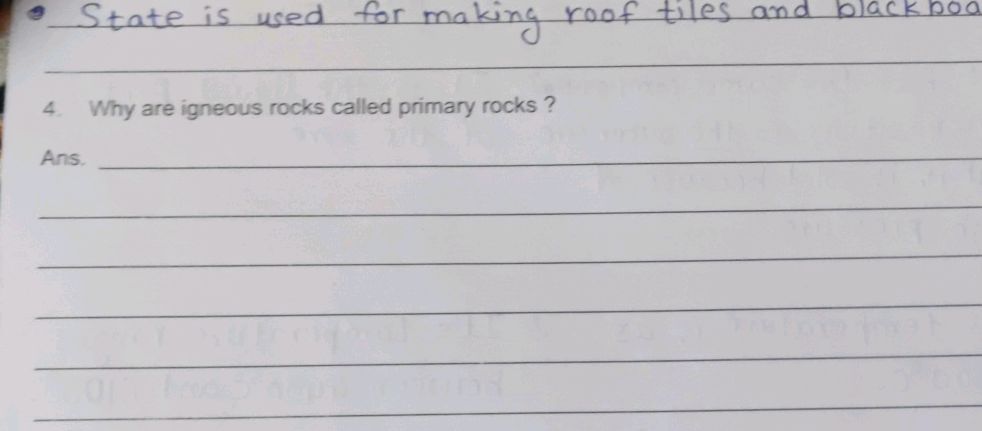 State is used for making roof tiles and blackboa
4. Why are igneous rocks called primary rocks ?
Ans.